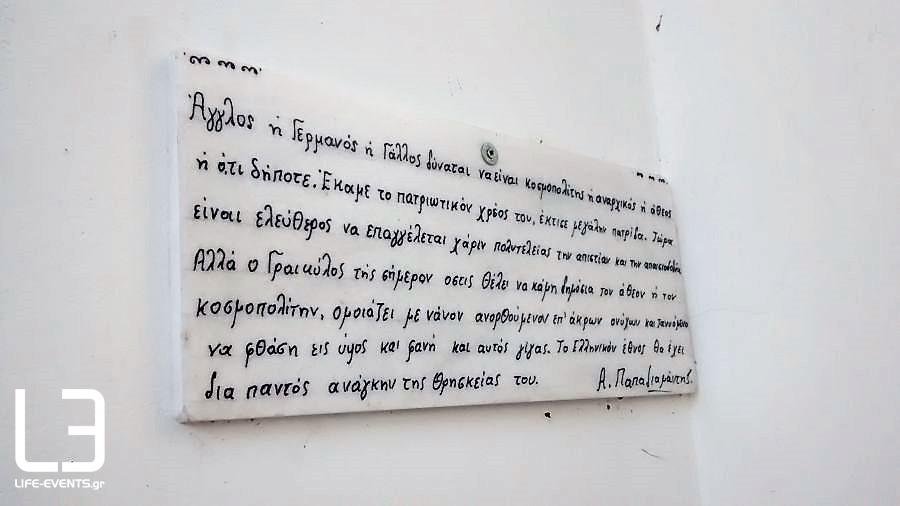 Άγγλος ή Γερμανός ή Γάλλος δύναται να είναι κοσμοπολίτης ή αναρχικός ή άθεος
ή ό,τι δήποτε. Έκαμε το πατριωτικόν χρέος του, έκτισε μεγάλην πατρίδα. Τώρα
είναι ελεύθερος να επαγγέλεται χάριν πολυτελείας την απιστίαν και την απαισιοδοξίαν
Αλλά ο Γραικύλος της σήμερον οστις θέλει να κάμη δημόσια τον άθεον ή τον
κοσμοπολίτην, ομοιάζει με νάνον ανορθούμενον επ' άκρων ονύχων και τανυόμενο
να φθάση εις ύψος και φανή και αυτός γίγας. Το Ελληνικόν έθνος θα έχει
δια παντός ανάγκην της θρησκείας του.
Α. Παπαδιαμάντης.
LIFE-EVENTS.gr